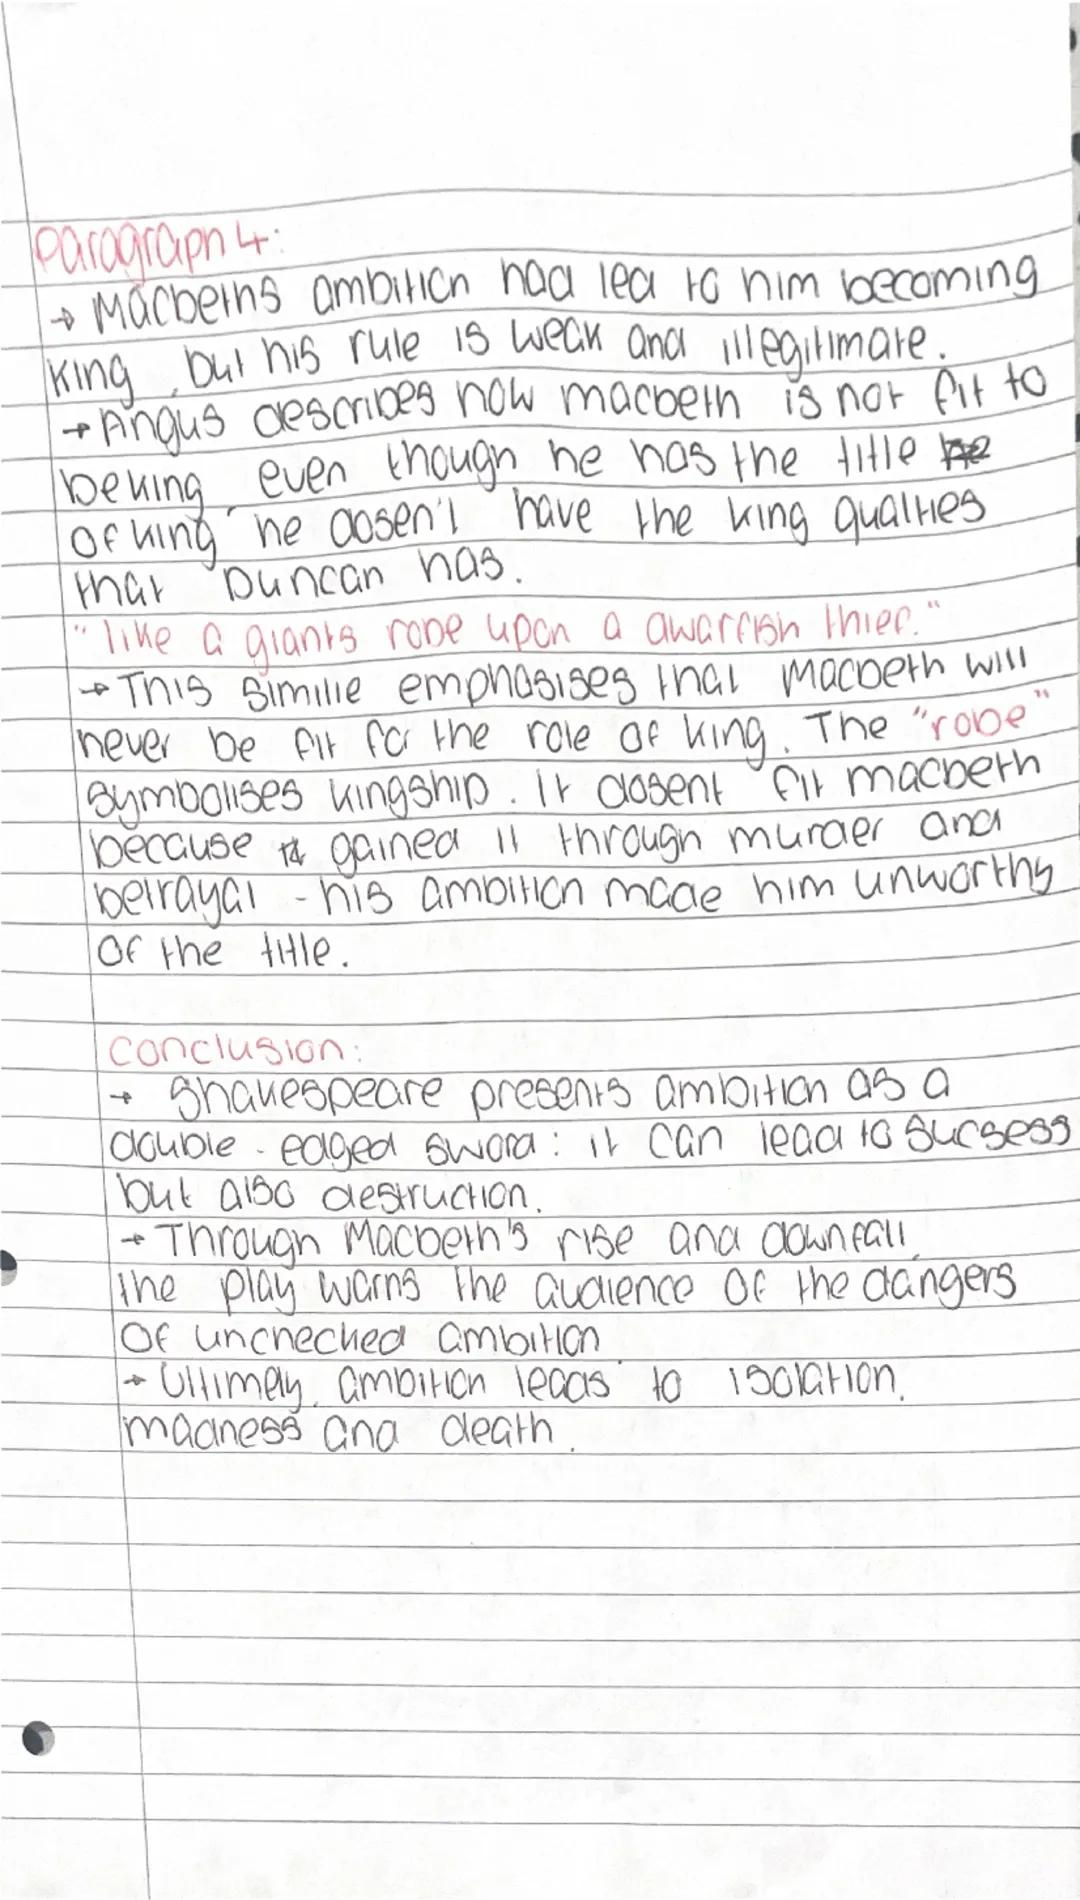 Paragraph 4:
→ Macbeths ambition had lead to him becoming
king, but his rule is weak and illegitimate.
→ Angus describes how macbeth is not fit to
be king even though he has the title
of king he dosen't have the king qualties
that Duncan has.
"like a giants robe upon a dwarfish thief."
→ This similie emphasises that Macbeth will
never be fit for the role of king. The "robe"
symbolises kingship. It dosent fit macbeth
because gained it through murder and
betrayal - his ambition made him unworthy
of the title.
Conclusion:
→ Shakespeare presents ambition as a
double-edged sword: it can lead to sucsess
but also destruction.
→ Through Macbeth's rise and downfall,
the play warns the audience of the dangers
of unchecked ambition
→ Ultimely, ambition leads to isolation,
madness and death.